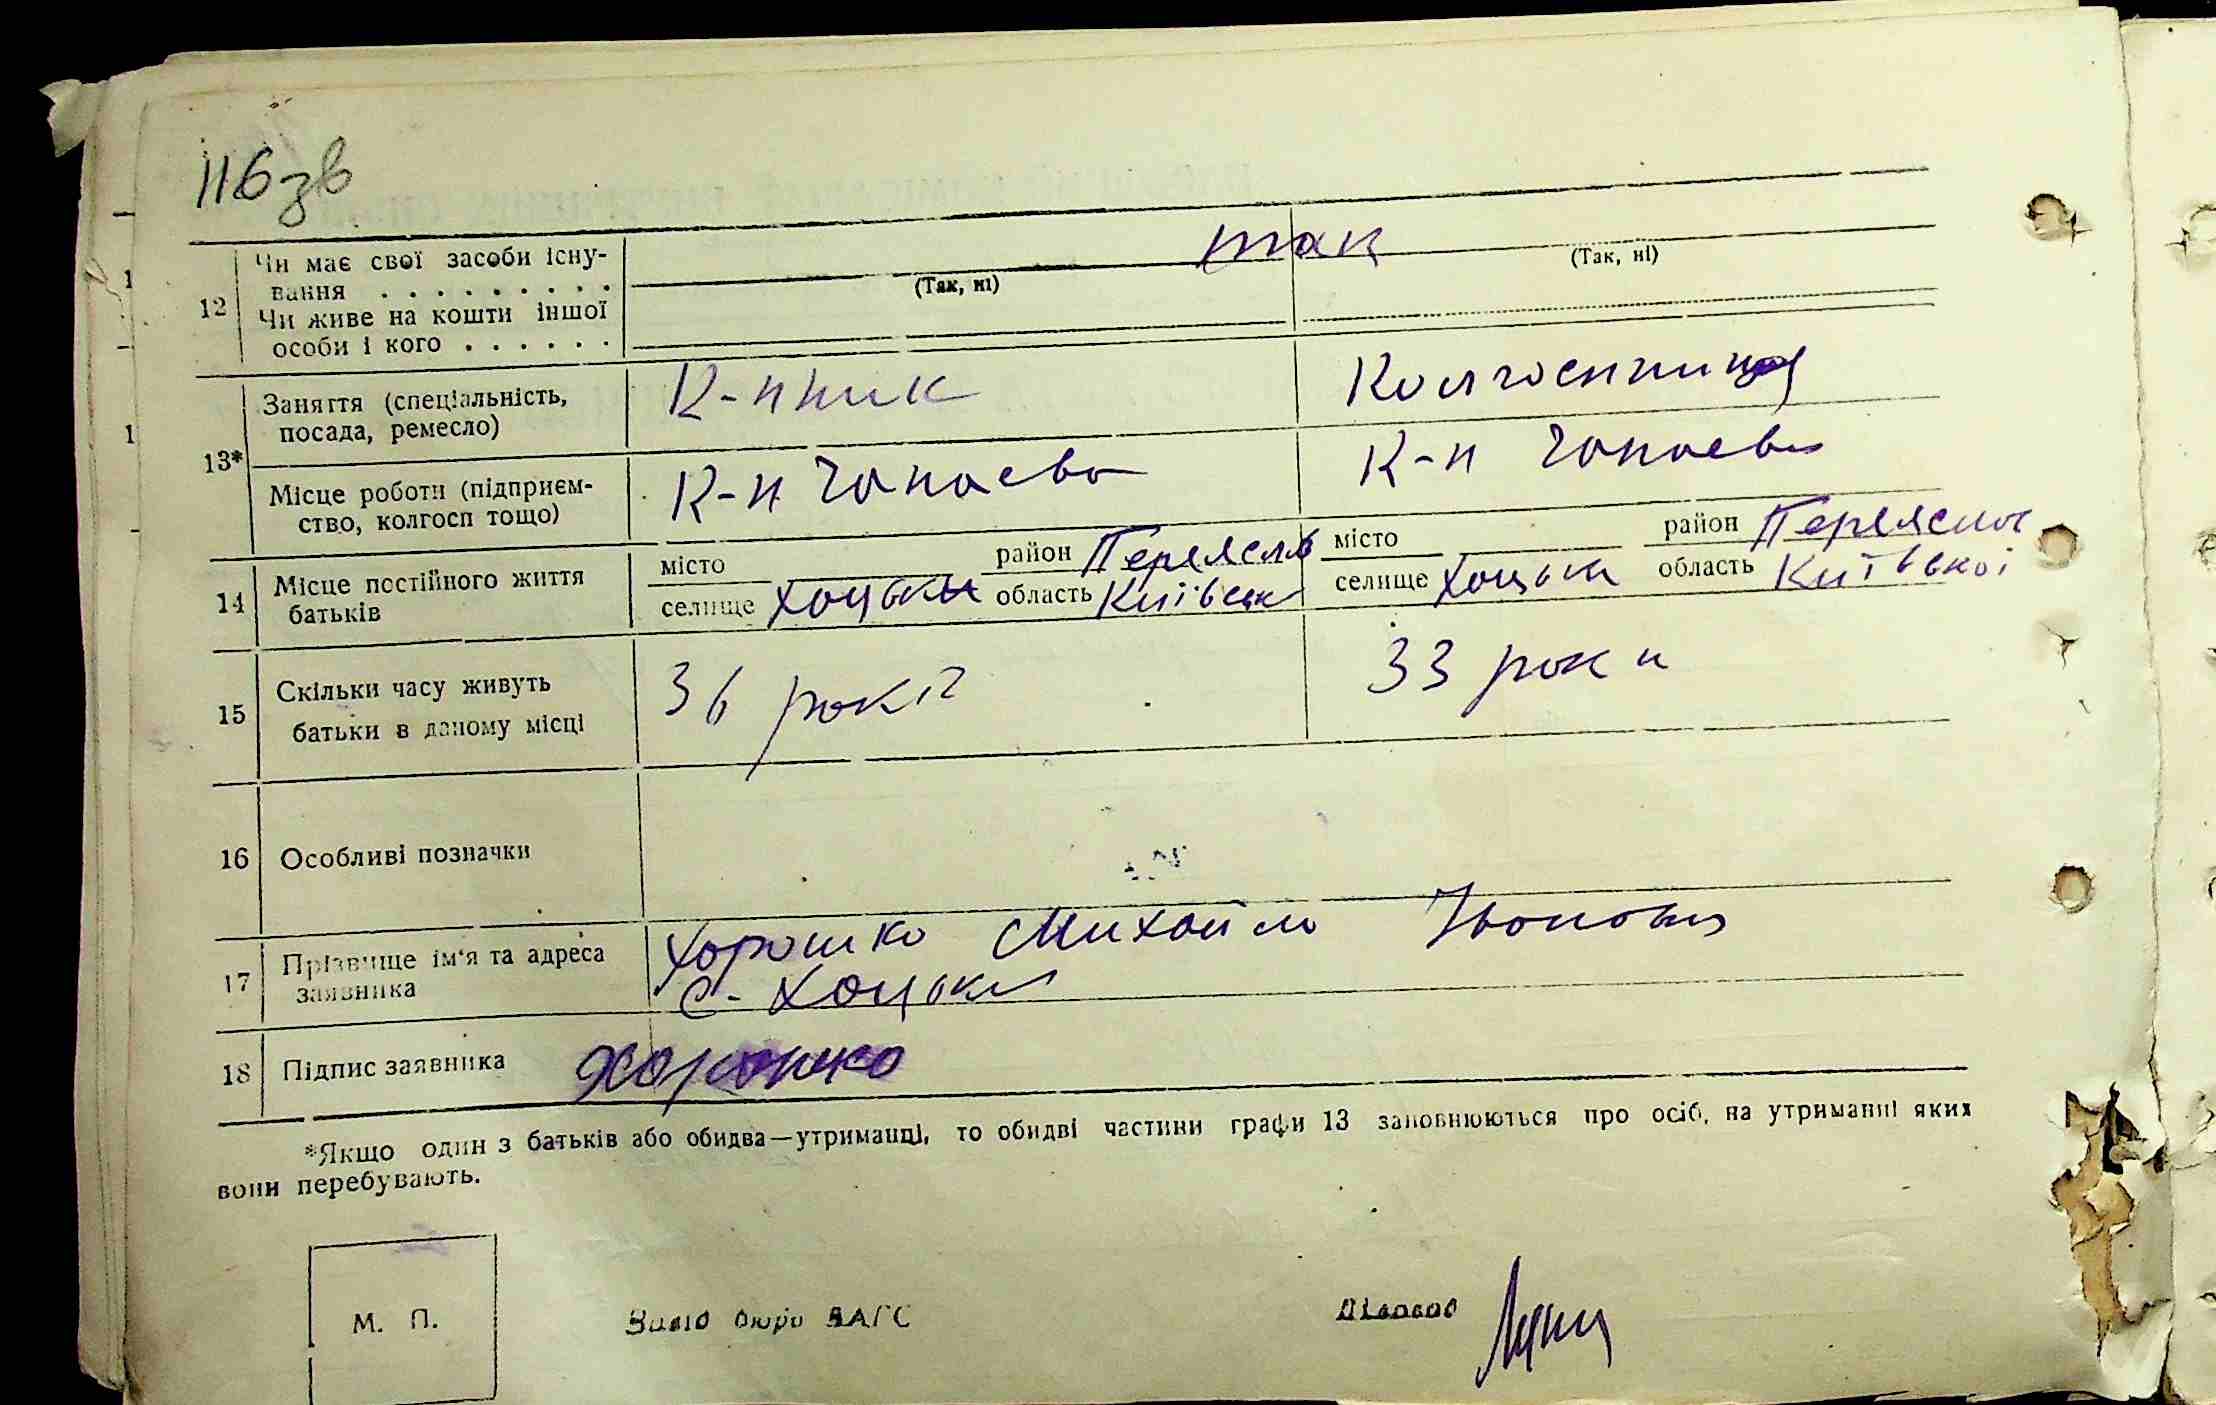 116 зв
12 Чи має свої засоби існу-
вання . . . . . . . . . так
(Так, ні) (Так, ні)
Чи живе на кошти іншої
особи і кого . . . . . .
13* Заняття (спеціальність,
посада, ремесло) К-пник Колгоспниця
Місце роботи (підприєм-
ство, колгосп тощо) К-п Чапаєва К-п Чапаєва
14 Місце постійного життя
батьків
місто район Переяслв місто район Переяслв
селище Хоцьки область Київськ селище Хоцьки область Київської
15 Скільки часу живуть
батьки в даному місці 36 років 33 роки
16 Особливі позначки
17 Прізвище ім'я та адреса
заявника Хорошко Михайло Іванович
с. Хоцьки
18 Підпис заявника Хорошко
*Якщо один з батьків або обидва—утриманці, то обидві частини графи 13 заповнюються про осіб, на утриманні яких
вони перебувають.
М. П. бюро ЗАГС